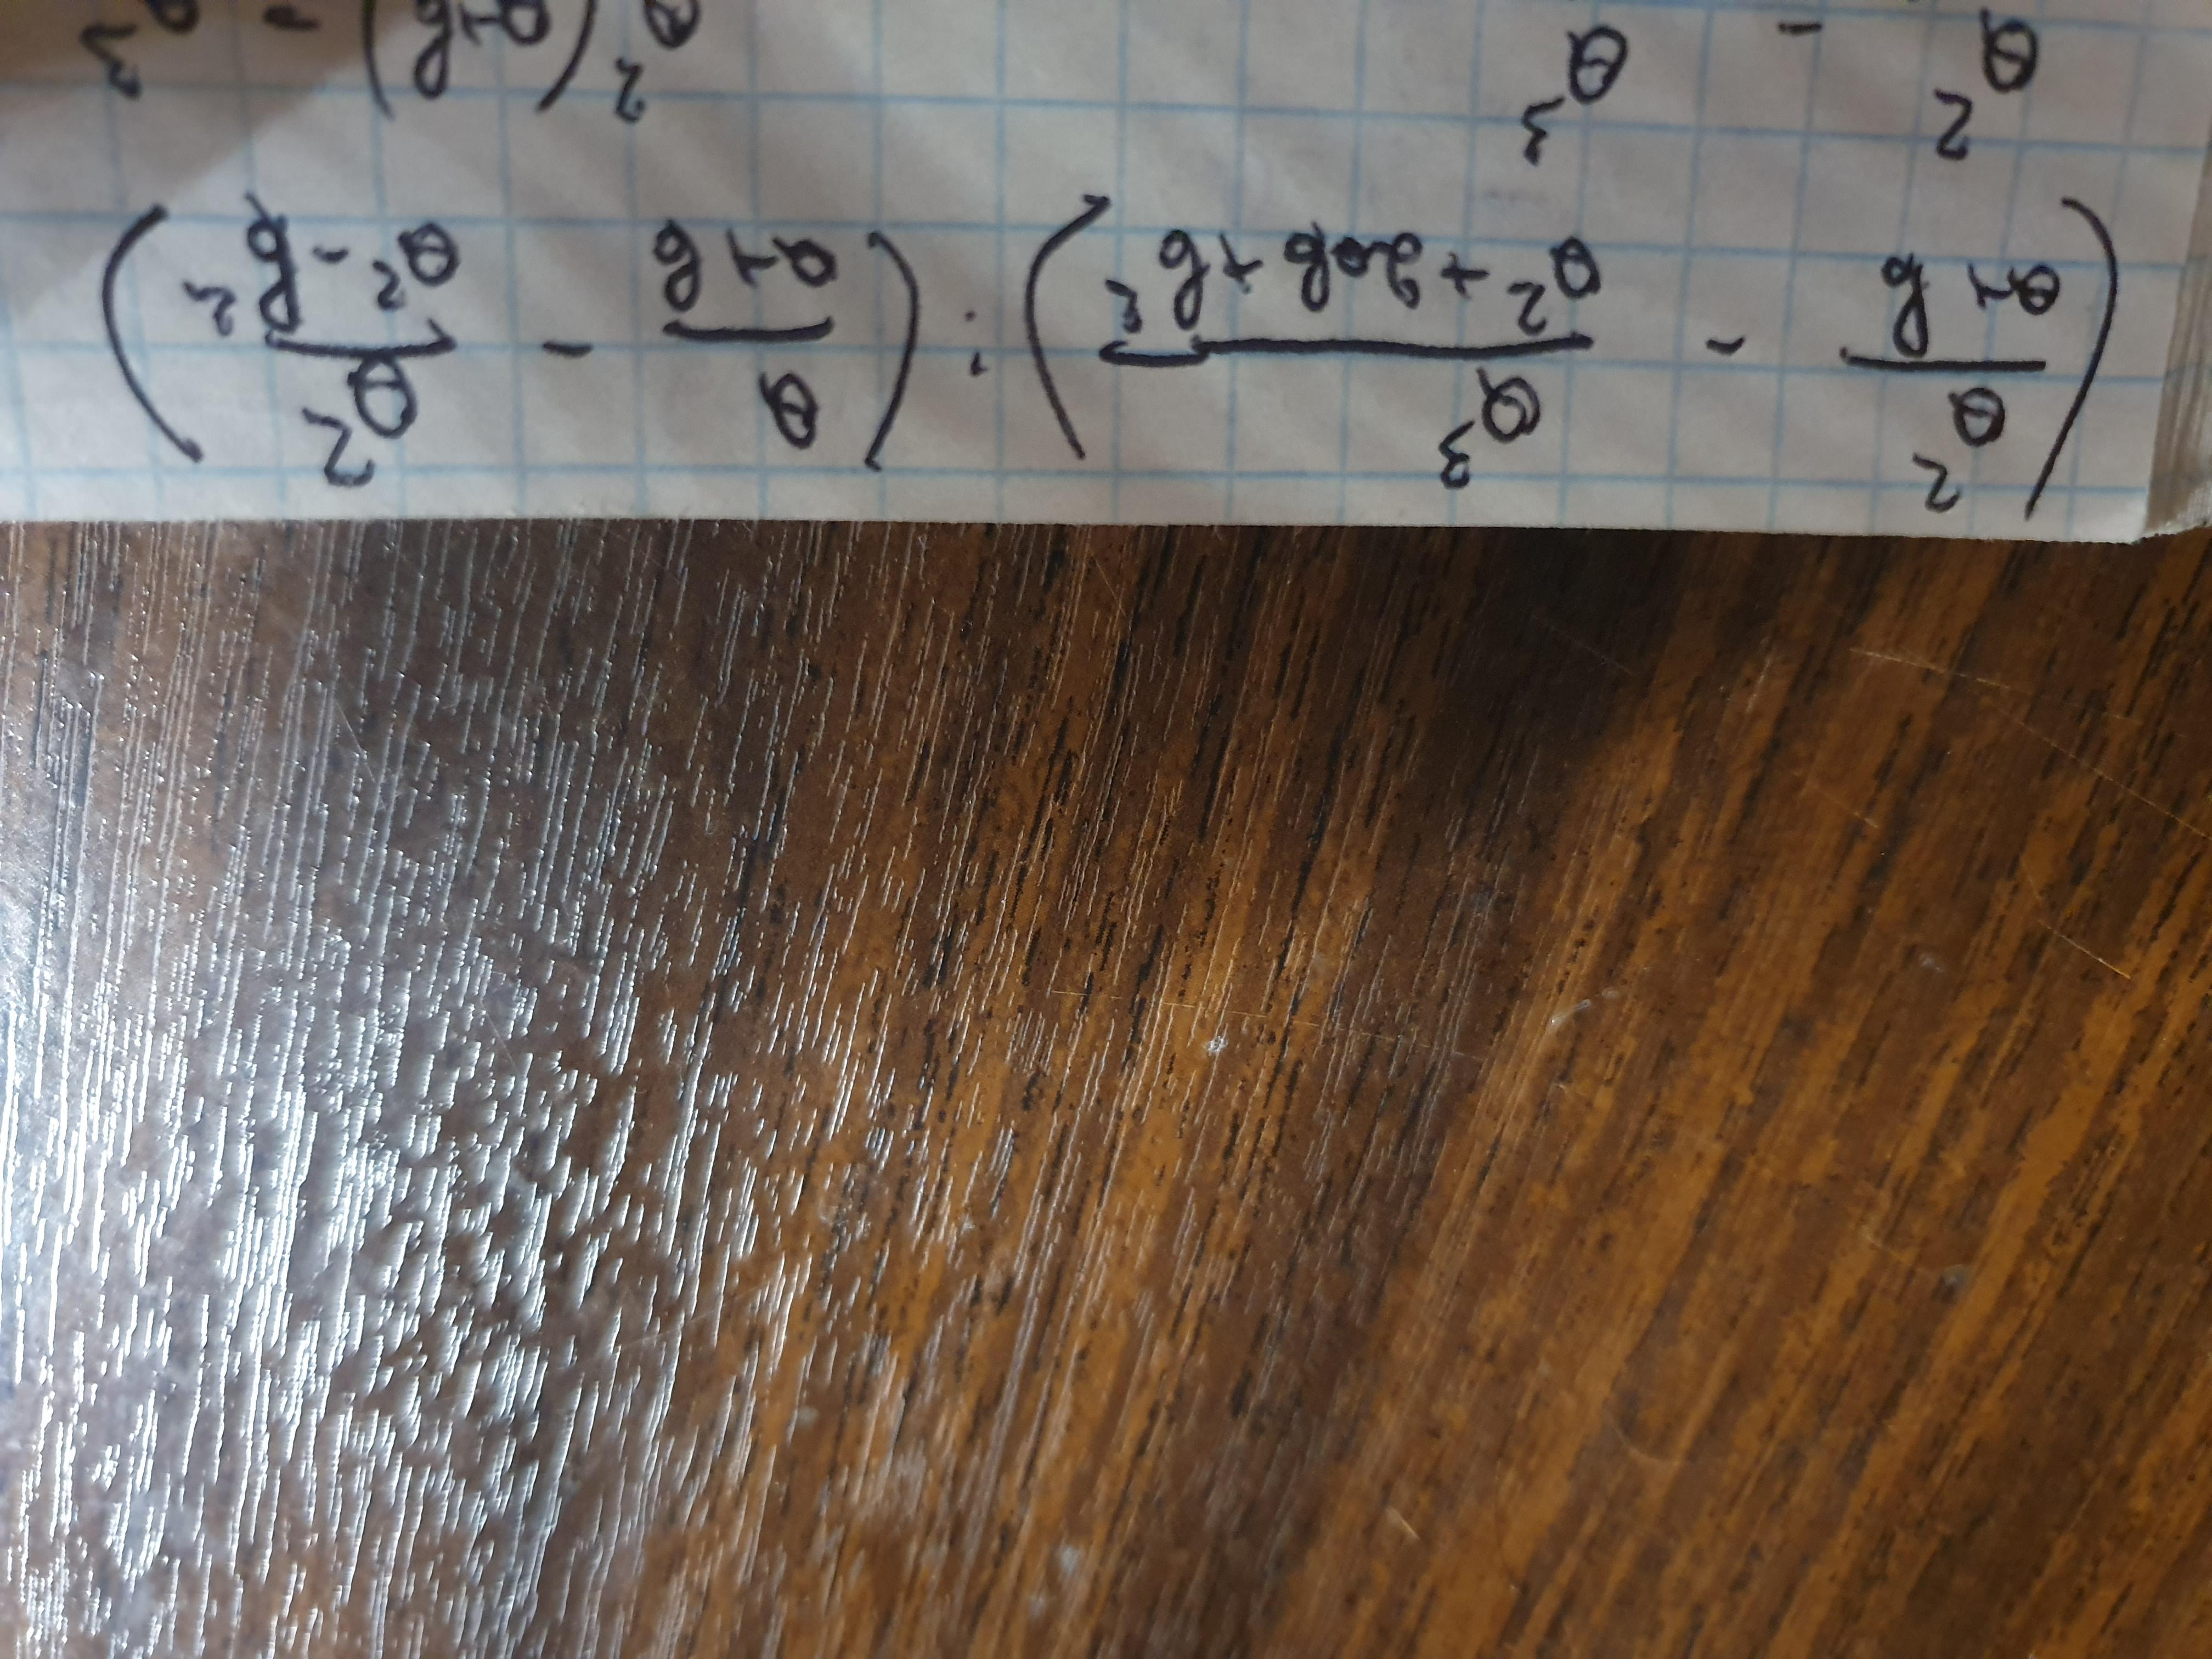 (a²/(a+b) - a³/(a²+2ab+b²)) : (a/(a+b) - a²/(a²-b²))
a² - a³ a²(a+b) - a³